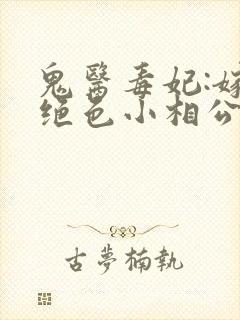 鬼醫毒妃:嫁
绝色小相公
古夢楠執